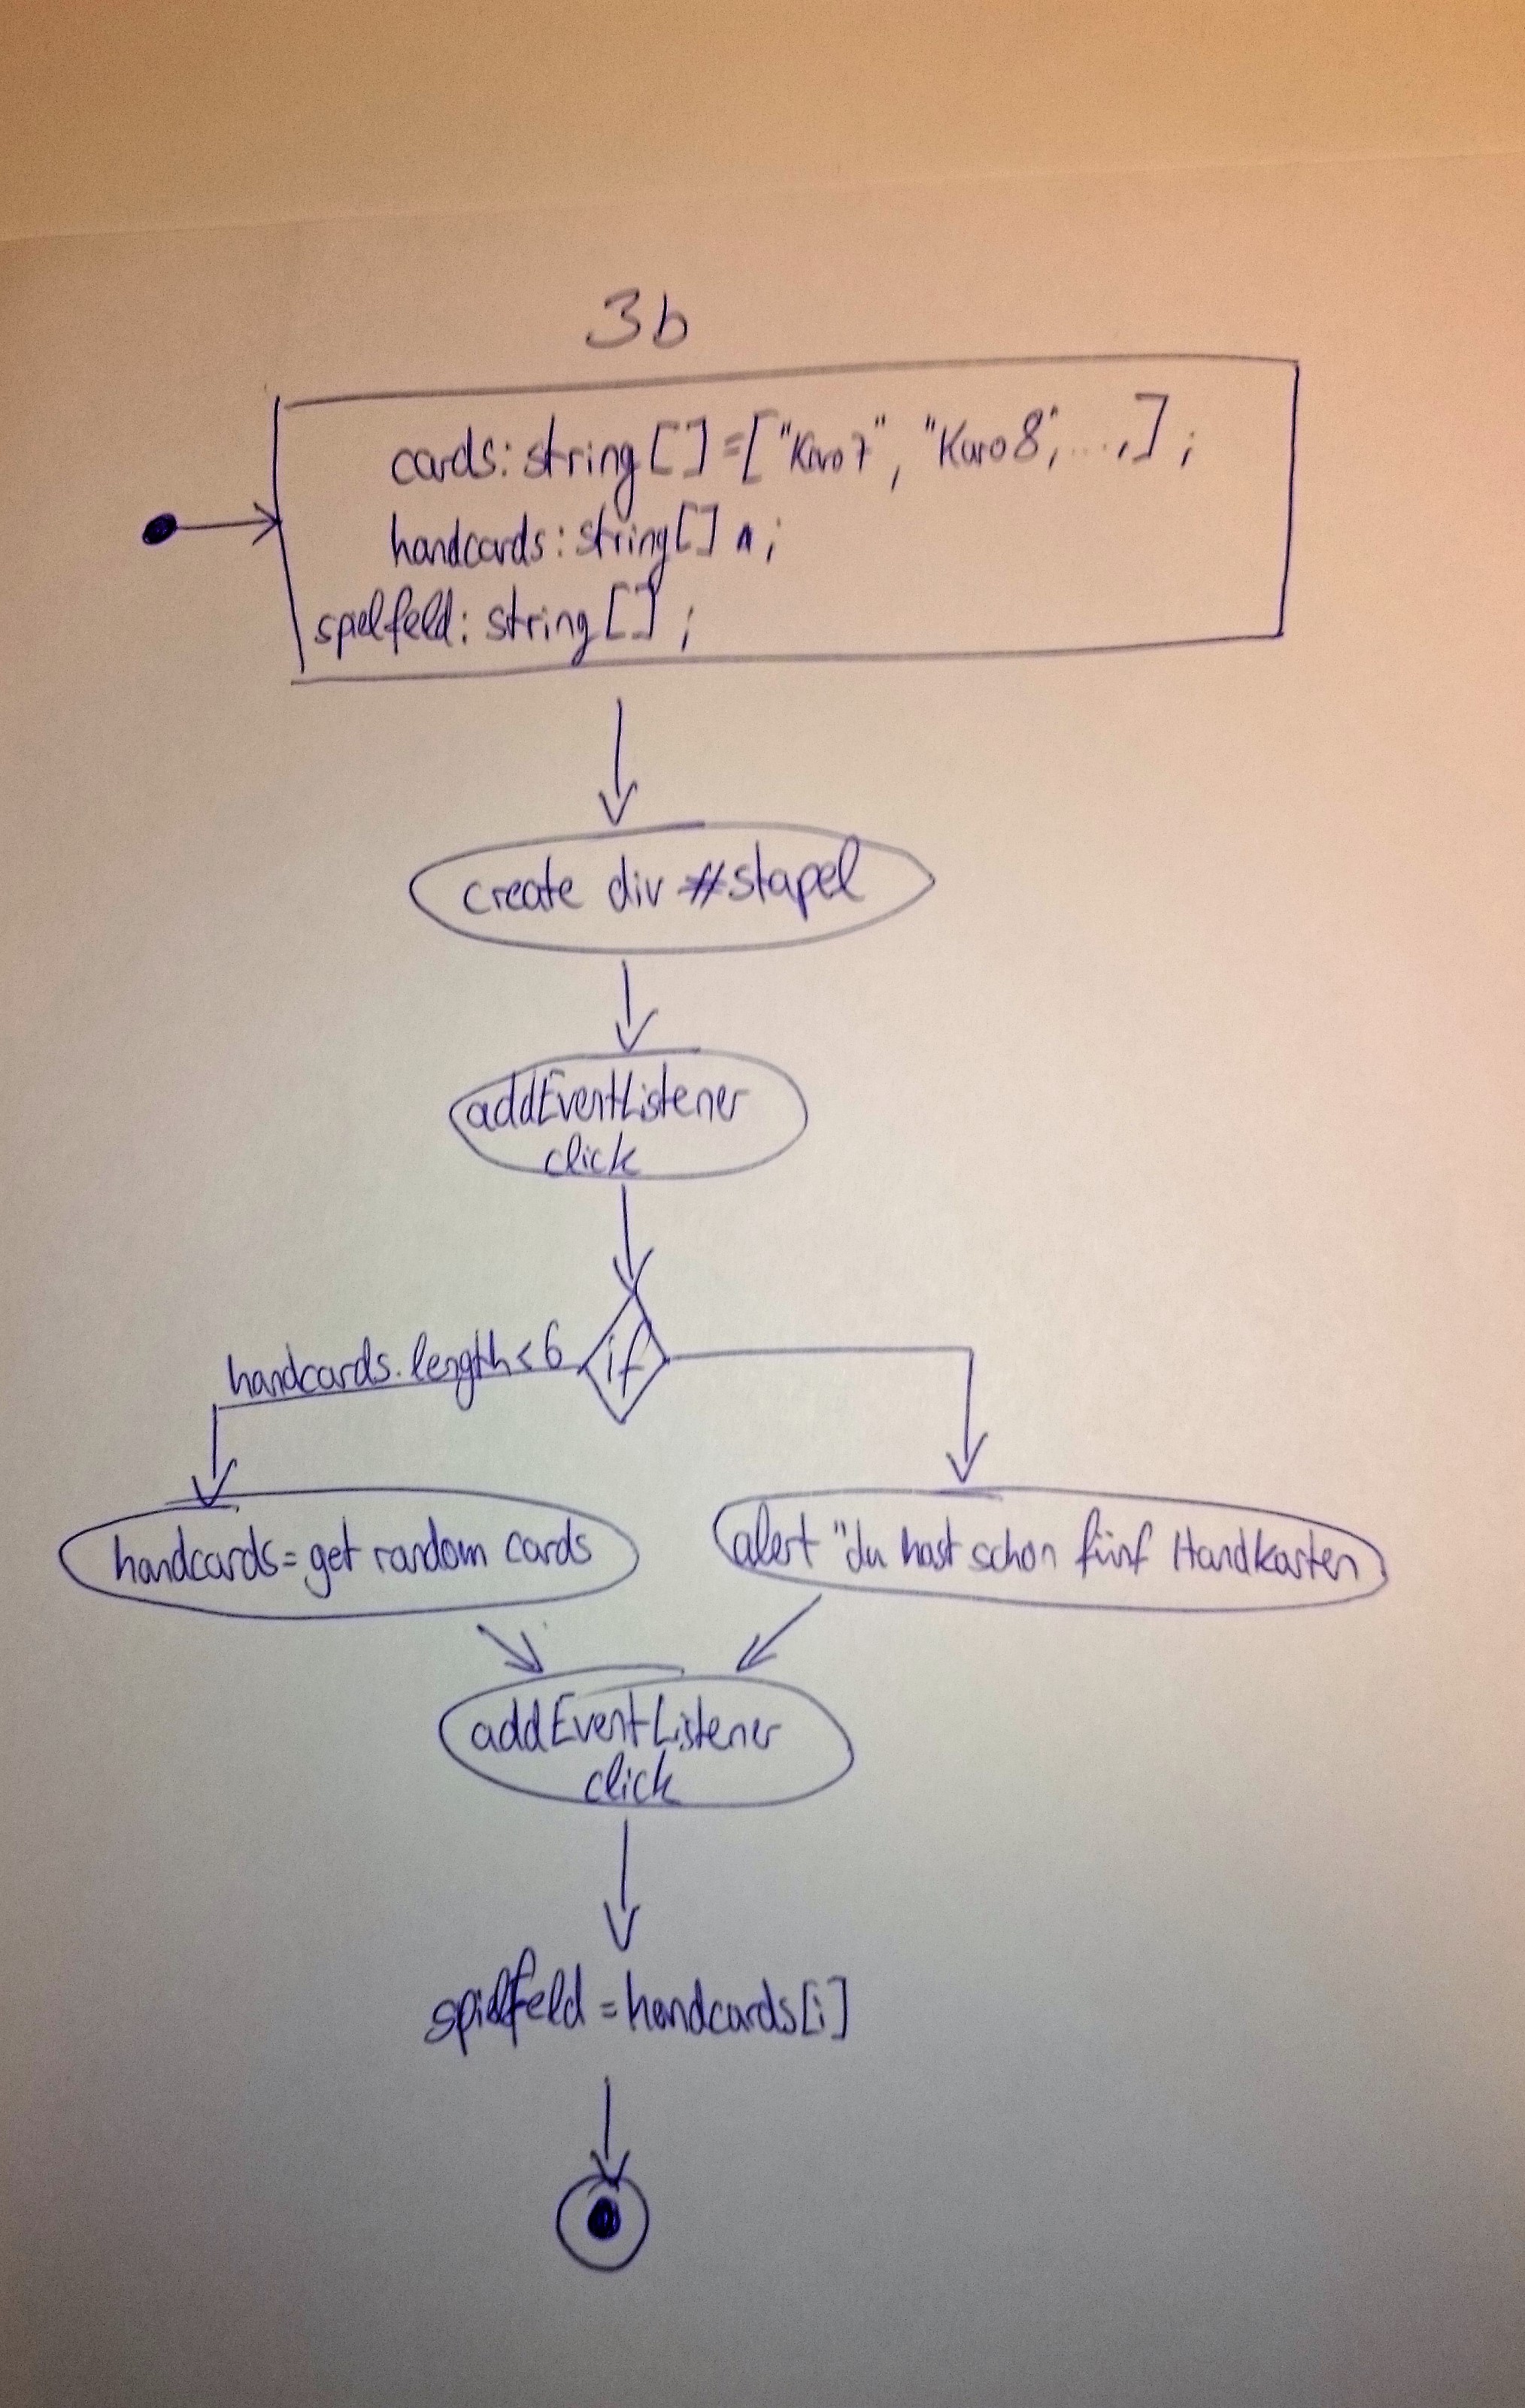 3b
cards: string[] = ["Karo7", "Karo8", ...,];
handcards: string[] ;
spielfeld: string[] ;
create div #stapel
addEventListener
click
handcards.length<6
if
handcards = get random cards
alert "du hast schon fünf Handkarten
addEventListener
click
spielfeld = handcards[i]